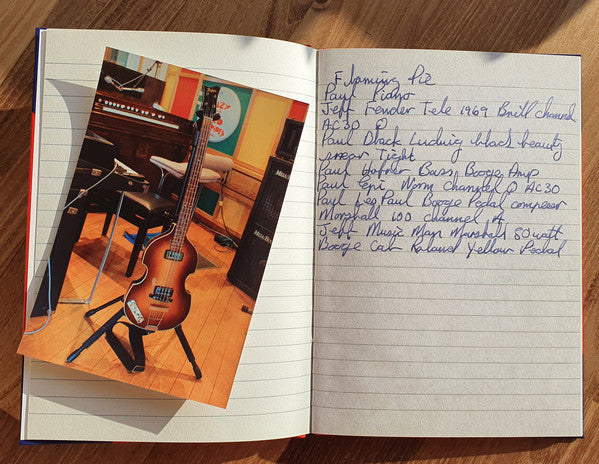 Flaming Pie
Paul Piano
Jeff Fender Tele 1969 Brill channel
AC30 Q
Paul Black Ludwig black beauty
snear Tight
Paul Hofner Bass Booge Amp
Paul Epi Norm Channel Q AC30
Paul Les Paul Boogie Pedal compresor
Marshall 100 channel
Jeff Music Man Marshall watt
Boogie Cab Roland Yellow Pedal